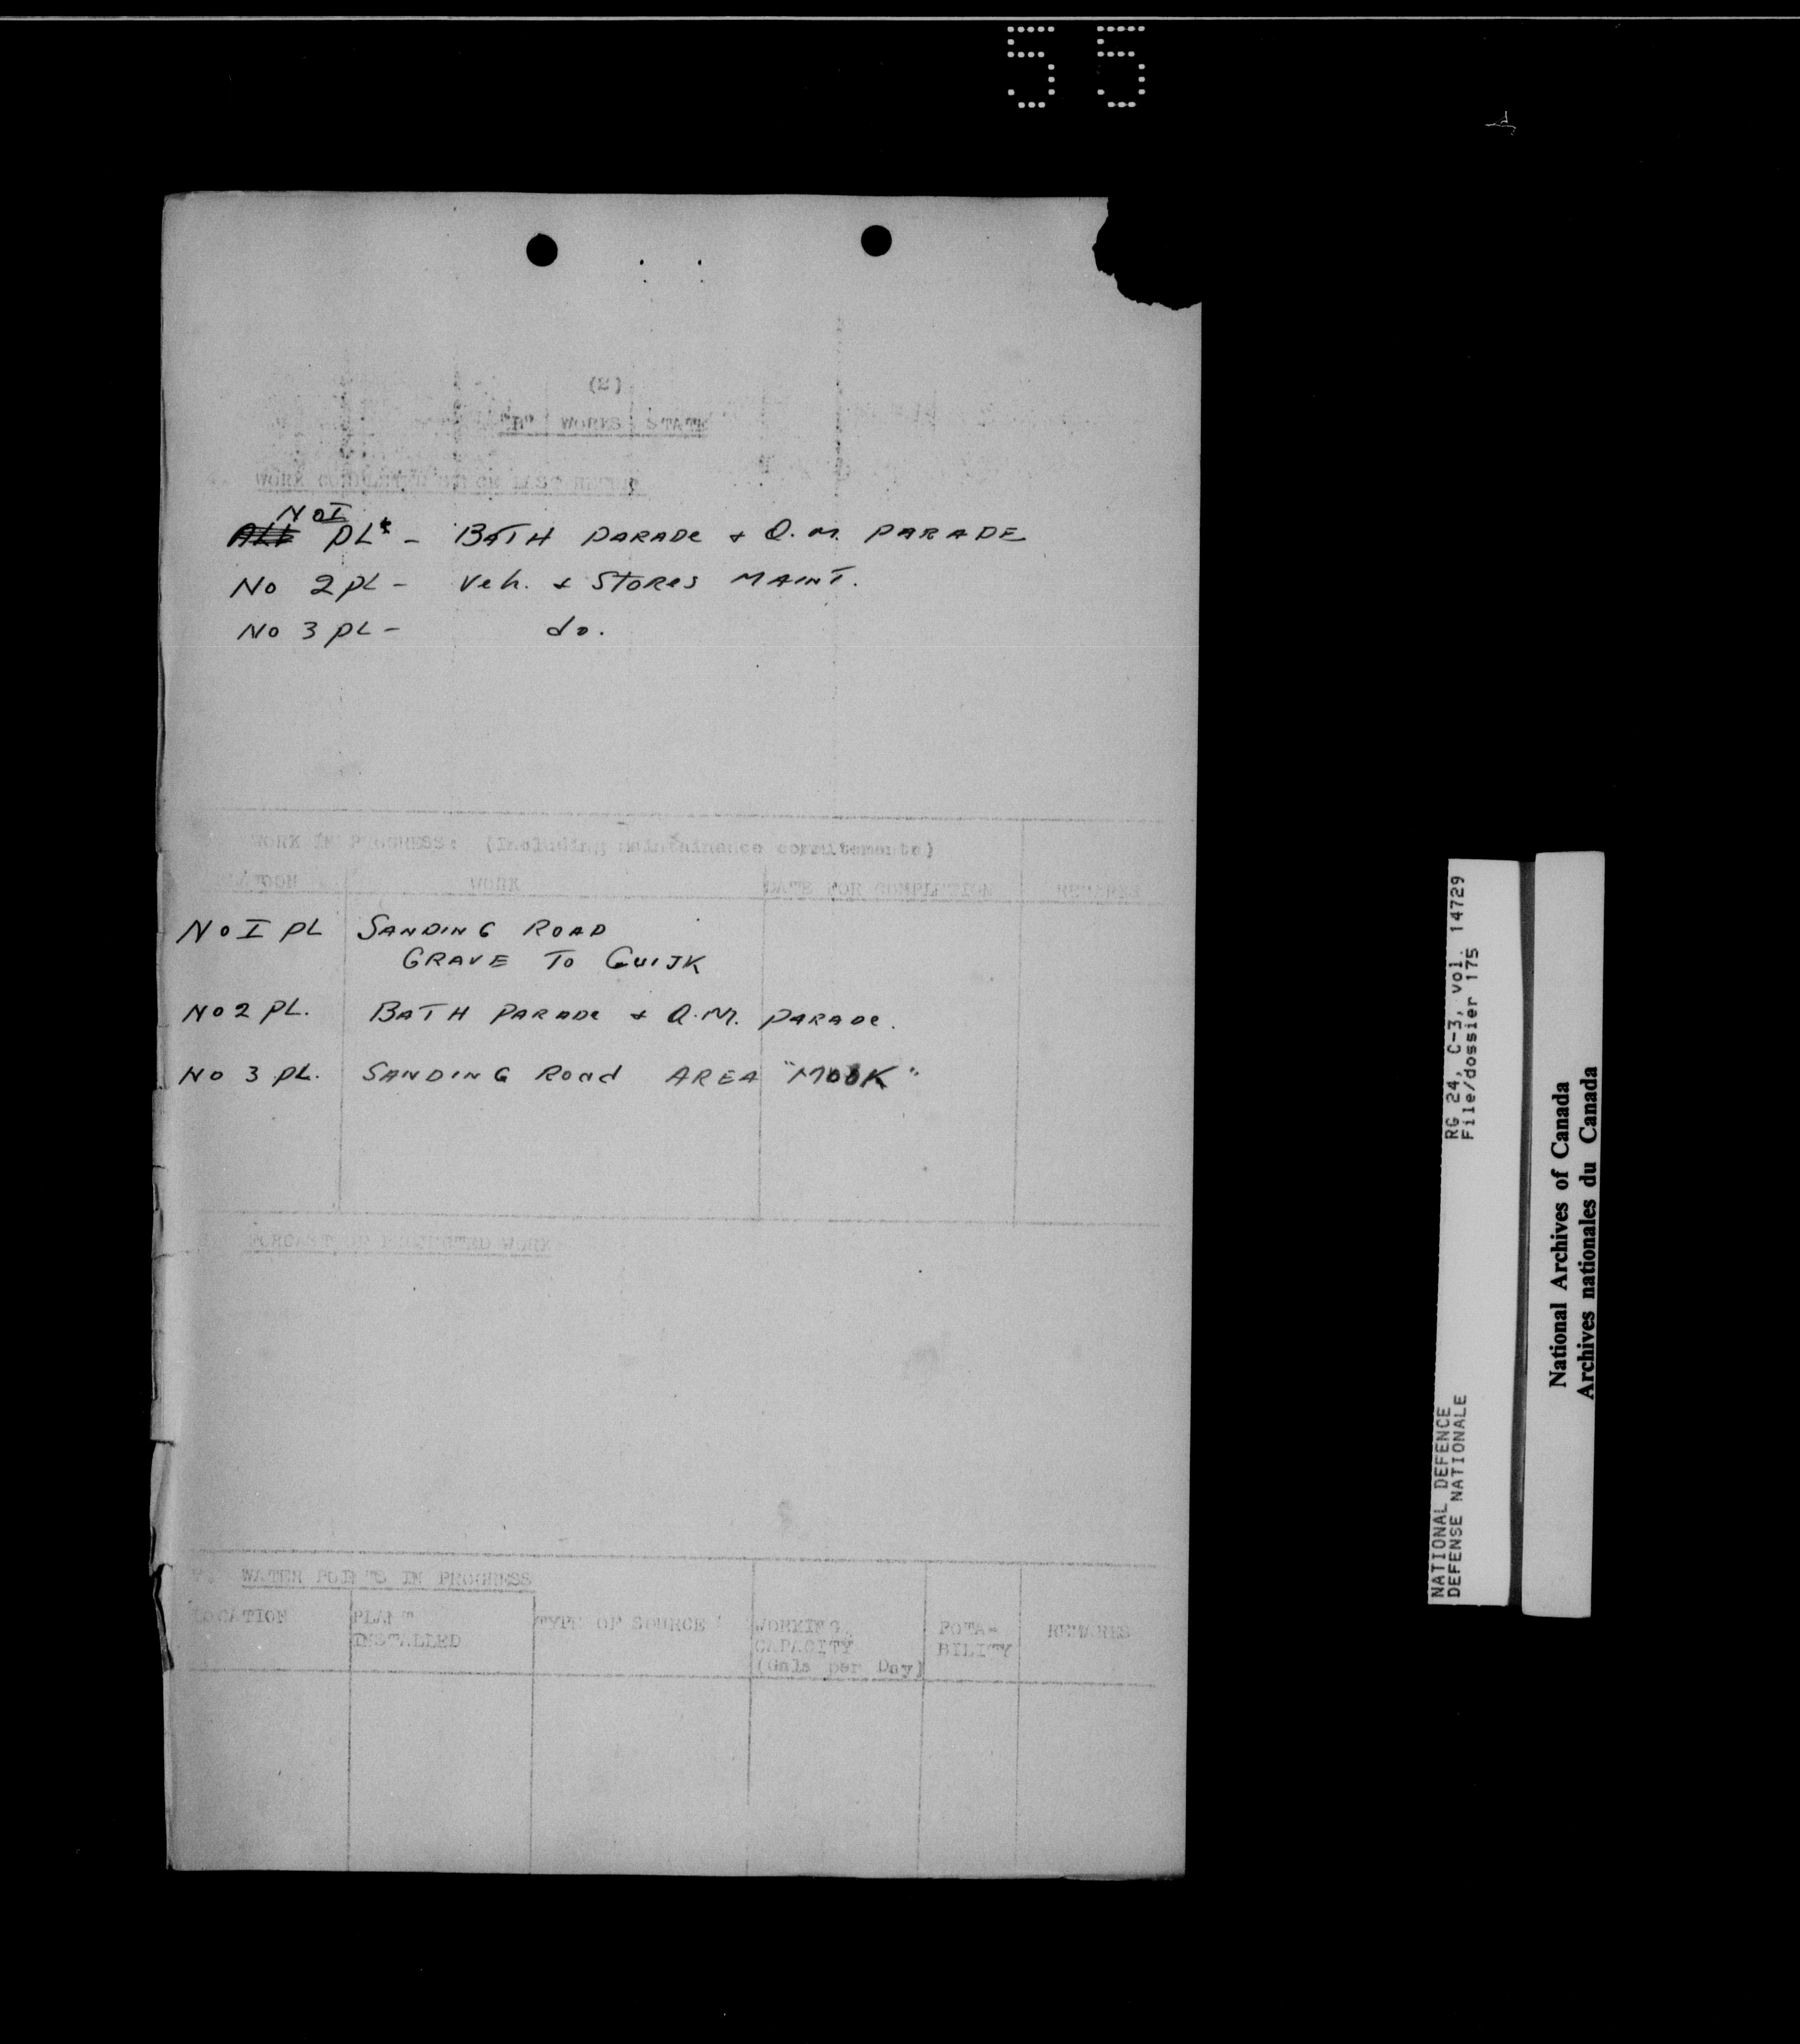 55
(2)
"B" WORKS STATE
WORK COMPLETED SINCE LAST RETURN
No I
ALL PLs - BATH PARADE & Q.M. PARADE
No 2 PL - Veh. & STORES MAINT.
No 3 PL - do.
WORK IN PROGRESS: (Including maintainance committements)
PLATOON WORK DATE FOR COMPLETION REMARKS
No I PL SANDING ROAD
GRAVE TO CUIJK
No 2 PL. BATH PARADE & Q.M. PARADE.
No 3 PL. SANDING Road AREA "MOOK"
FORCAST OF PROJECTED WORK
WATER POINTS IN PROGRESS
LOCATION PLANT TYPE OF SOURCE WORKING POTA- REMARKS
INSTALLED CAPACITY BILITY
(Gals per Day)
RG 24, C-3, vol. 14729
File/dossier 175
NATIONAL DEFENCE
DEFENSE NATIONALE
National Archives of Canada
Archives nationales du Canada